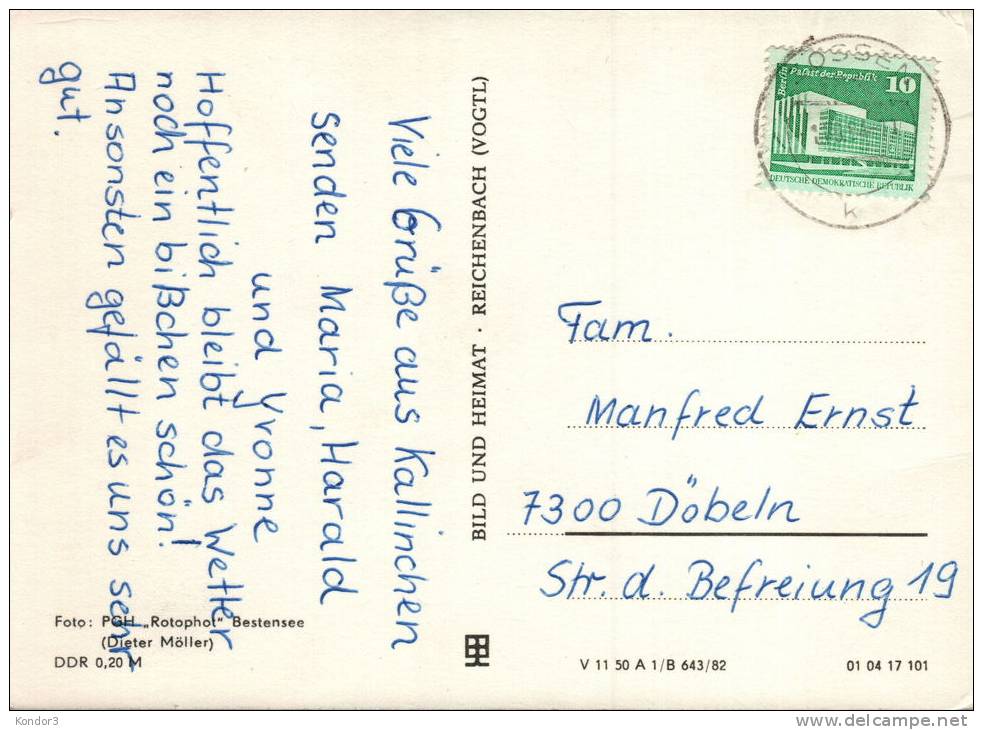 Viele Grüße aus Kallinchen
senden Maria, Harald
und Yvonne
Hoffentlich bleibt das Wetter
noch ein bißchen schön!
Ansonsten gefällt es uns sehr
gut.
BILD UND HEIMAT · REICHENBACH (VOGTL)
Berlin Palast der Republik 10
DEUTSCHE DEMOKRATISCHE REPUBLIK
OSSEN
k
Fam.
Manfred Ernst
7300 Döbeln
Str. d. Befreiung 19
Foto: PGH „Rotophot" Bestensee
(Dieter Möller)
DDR 0,20 M
V 11 50 A 1/B 643/82
01 04 17 101
Kondor3
www.delcampe.net